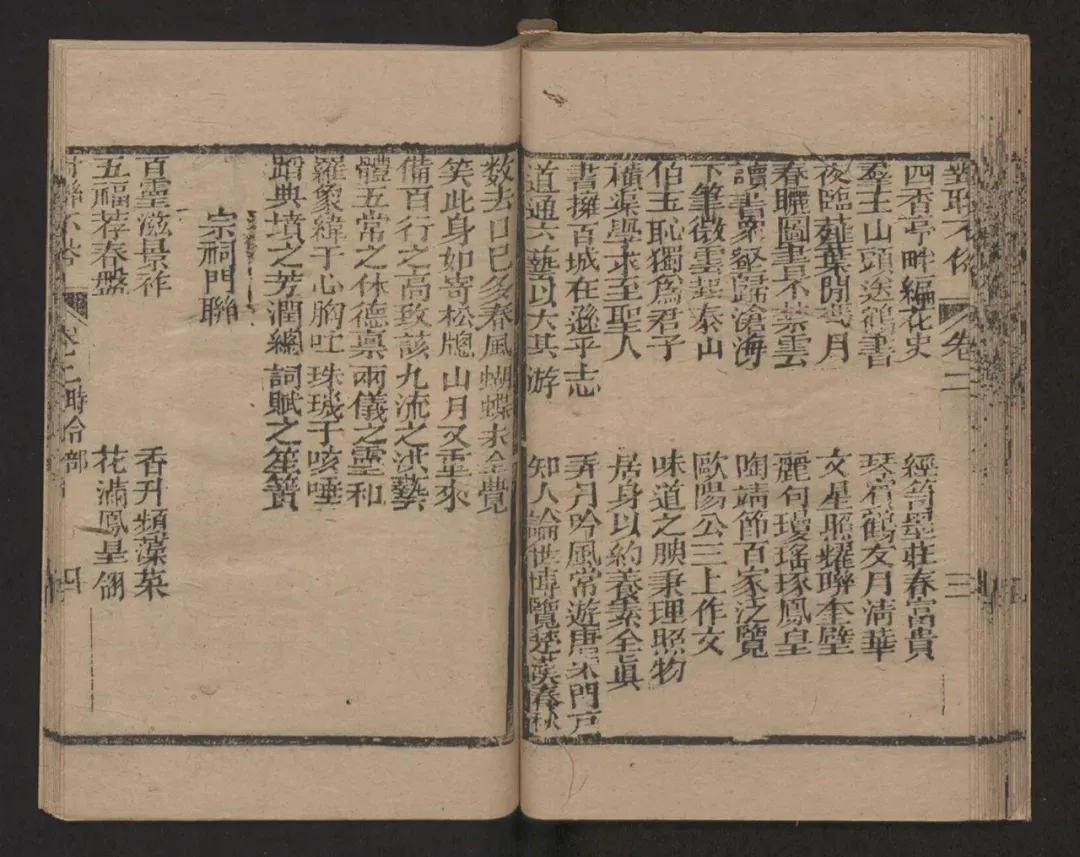 對聯不俗 卷二 三
四香亭畔編花史 經笥墨莊春富貴
羣玉山頭送鶴書 琴宿鶴友月淸華
夜臨薤葉開 月 文星照耀聯奎壁
春曬圖書 雲 麗句瓊瑤琢鳳皇
讀書象 歸滄海 陶靖節百家泛覽
下筆微雲起泰山 歐陽公三上作文
伯玉恥獨爲君子 味道之腴秉理照物
橫渠學求至聖人 居身以約養素全眞
書擁百城在遜乎志 弄月吟風常遊唐宋門戸
道通六藝以大其游 知人論世博覽楚漢春秋
数去日已多春風蝴蝶未全覺
笑此身如寄松牕山月又重來
備百行之高致該九流之洪藝
體五常之休德禀兩儀之靈和
羅象緯于心胸吐珠璣于咳唾
蹈典墳之芳潤纏詞賦之笙簧
宗祠門聯
百靈滋景祚 香升頻藻菜
五福荐春盤 花滿鳳皇翎
對聯不俗 卷二時令部 四